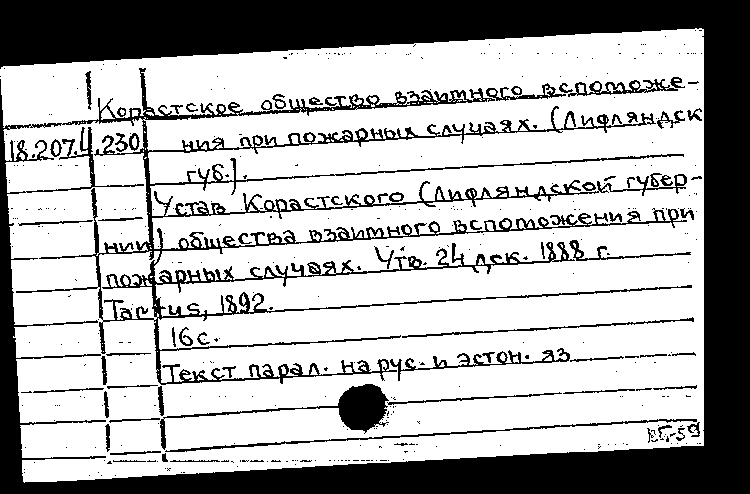 Корастское общество взаимного вспоможе-
18.207.4.230. ния при пожарных случаях. (Лифляндск
губ.).
Устав Корастского (Лифляндской губер-
нии) общества взаимного вспоможения при
пожарных случаях. Утв. 24 дек. 1888 г.
Tartus, 1892.
16 с.
Текст парал. на рус. и эстон. яз